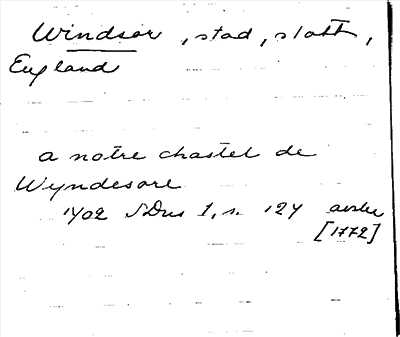 Windsor, stad, slott,
England
a notre chastel de
Wyndesore
1402 SDns 1, s. 124
[1772]